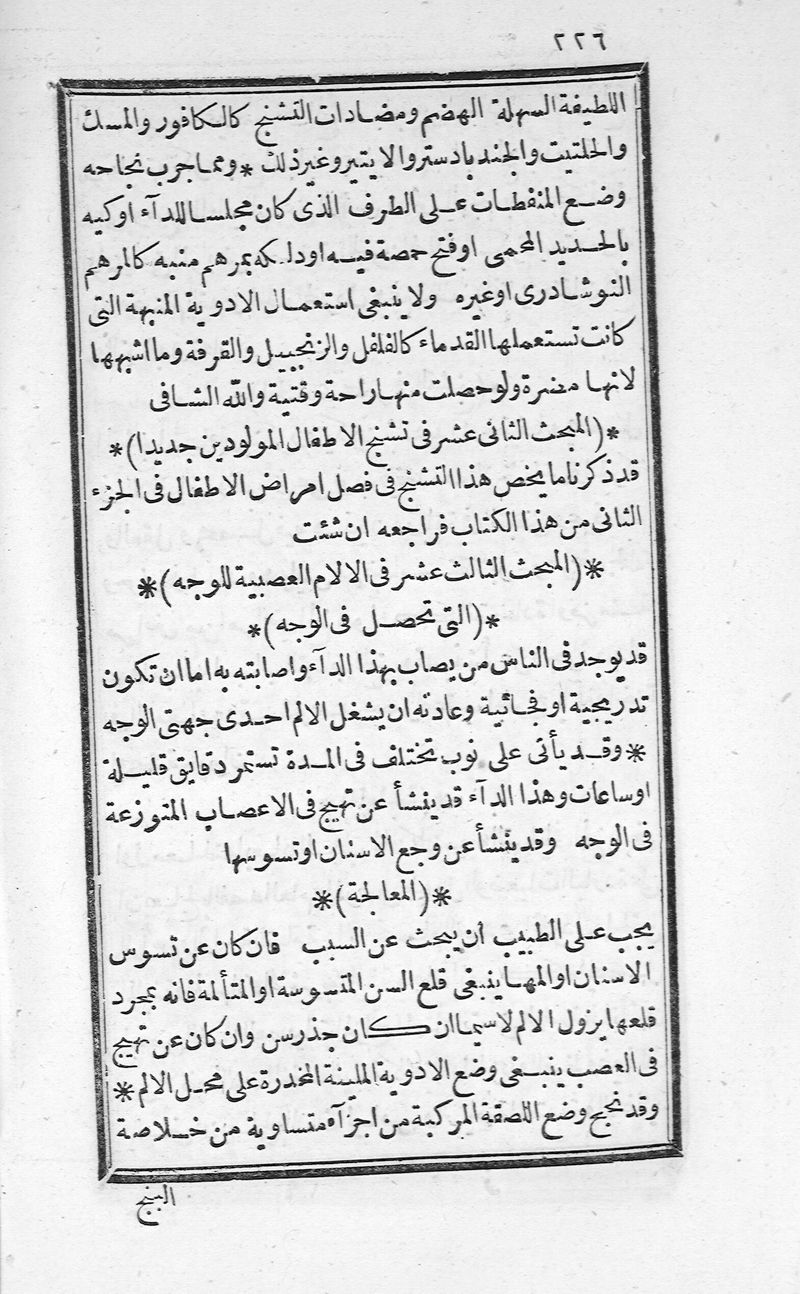 ٢٢٦
اللطيفة السهلة الهضم ومضادات التشنج كالكافور والمسك
والحلتيت والجندبادستر والايتير وغير ذلك * ومما جرب نجاحه
وضع المنفطات على الطرف الذى كان مجلسا للدآء او كيه
بالحديد المحمى او فتح حمصة فيه او دلكه بمرهم منبه كالمرهم
النوشادرى او غيره ولا ينبغى استعمال الادوية المنبهة التى
كانت تستعملها القدماء كالفلفل والزنجبيل والقرفة وما اشبهها
لانها مضرة ولو حصلت منها راحة وقتية والله الشافى
*(المبحث الثانى عشر فى تشنج الاطفال المولودين جديدا)*
قد ذكرنا ما يخص هذا التشنج فى فصل امراض الاطفال فى الجزء
الثانى من هذا الكتاب فراجعه ان شئت
*(المبحث الثالث عشر فى الالام العصبية للوجه)*
*(التى تحصل فى الوجه)*
قد يوجد فى الناس من يصاب بهذا الدآء واصابته به اما ان تكون
تدريجية او فجائية وعادته ان يشغل الالم احدى جهتى الوجه
* وقد يأتى على نوب تختلف فى المدة تستمر دقايق قليلة
او ساعات وهذا الدآء قد ينشأ عن تهيج فى الاعصاب المتوزعة
فى الوجه وقد ينشأ عن وجع الاسنان او تسوسها
*(المعالجة)*
يجب على الطبيب ان يبحث عن السبب فان كان عن تسوس
الاسنان او المها ينبغى قلع السن المتسوسة او المتألمة فانه بمجرد
قلعها يزول الالم لاسيما ان كان جذر سن وان كان عن تهيج
فى العصب ينبغى وضع الادوية الملينة المخدرة على محل الالم *
وقد نجح وضع اللصقة المركبة من اجزآء متساوية من خلاصة
البنج